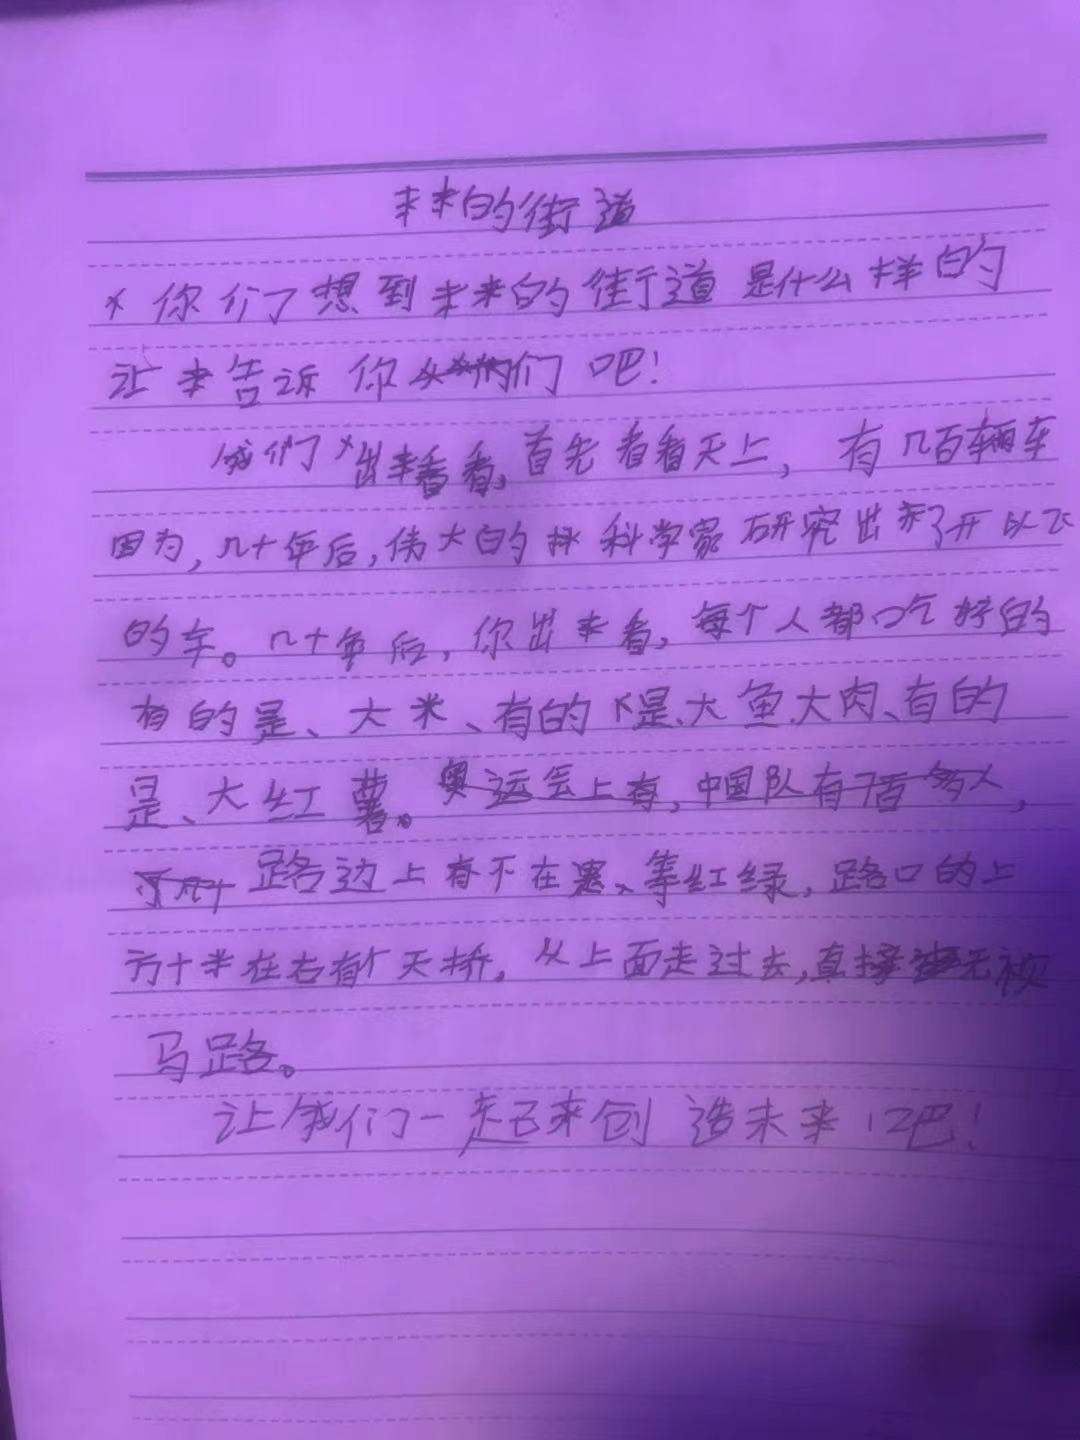 未来的街道
你们想到未来的街道是什么样的
让来告诉你们吧！
我们出来看看，首先看看天上，有几百辆车
因为，几十年后，伟大的科学家研究出来了开以飞
的车。几十年后，你出来看，每个人都吃好的
有的是、大米、有的是、大鱼大肉、有的
是、大红薯。奥运会上有，中国队有7百多人，
路边上有不在是、等红绿，路口的上
方十米在右有个天桥，从上面走过去，直接
马路。
让我们一起来创造未来吧！